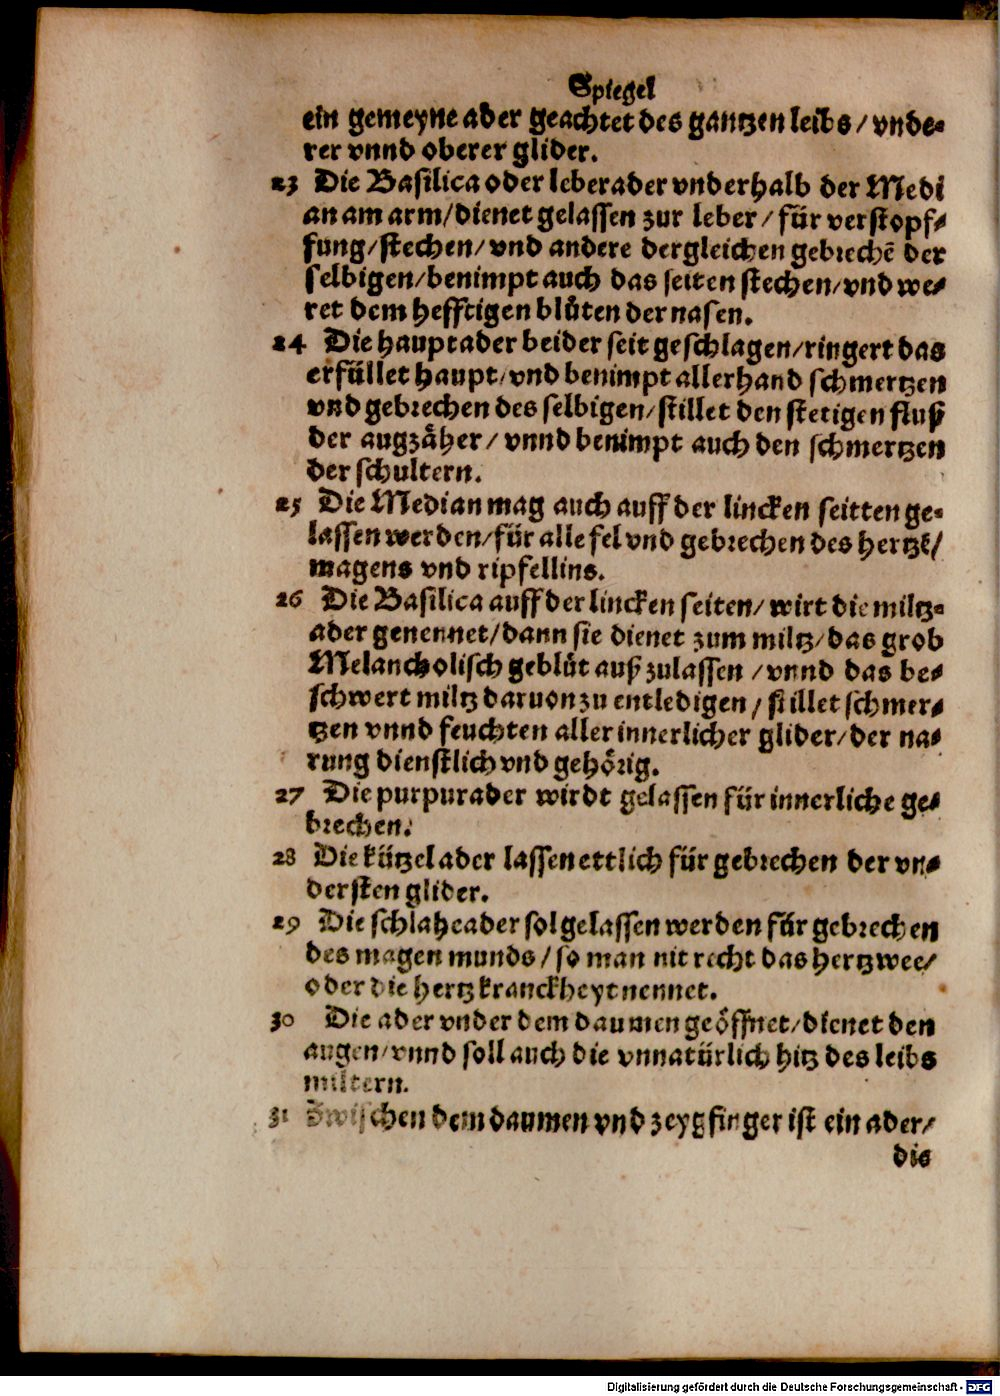 Spiegel
ein gemeyne ader geachtet des gantzen leibs / vnde⸗
rer vnnd oberer glider.
23 Die Basilica oder leberader vnderhalb der Medi
an am arm / dienet gelassen zur leber / für verstopf⸗
fung / stechen / vnd andere dergleichen gebrechē der
selbigen / benimpt auch das seiten stechen / vnd we⸗
ret dem hefftigen blůten der nasen.
24 Die hauptader beider seit geschlagen / ringert das
erfüllet haupt / vnd benimpt allerhand schmertzen
vnd gebrechen des selbigen / stillet den stetigen fluß
der augzäher / vnnd benimpt auch den schmertzen
der schultern.
25 Die Median mag auch auff der lincken seitten ge⸗
lassen werden / für alle fel vnd gebrechen des hertzē /
magens vnd ripfellins.
26 Die Basilica auff der lincken seiten / wirt die miltz⸗
ader genennet / dann sie dienet zum miltz / das grob
Melancholisch geblůt auß zulassen / vnnd das be⸗
schwert miltz daruon zu entledigen / stillet schmer⸗
tzen vnnd feuchten aller innerlicher glider / der na⸗
rung dienstlich vnd gehörig.
27 Die purpurader wirdt gelassen für innerliche ge⸗
brechen.
28 Die kützelader lassen ettlich für gebrechen der vn⸗
dersten glider.
29 Die schlaheader sol gelassen werden für gebrechen
des magen munds / so man nit recht das hertzwee /
oder die hertz kranckheyt nennet.
30 Die ader vnder dem daumen geöffnet / dienet den
augen / vnnd soll auch die vnnatürlich hitz des leibs
miltern.
31 Zwischen dem daumen vnd zeygfinger ist ein ader /
die
Digitalisierung gefördert durch die Deutsche Forschungsgemeinschaft - DFG